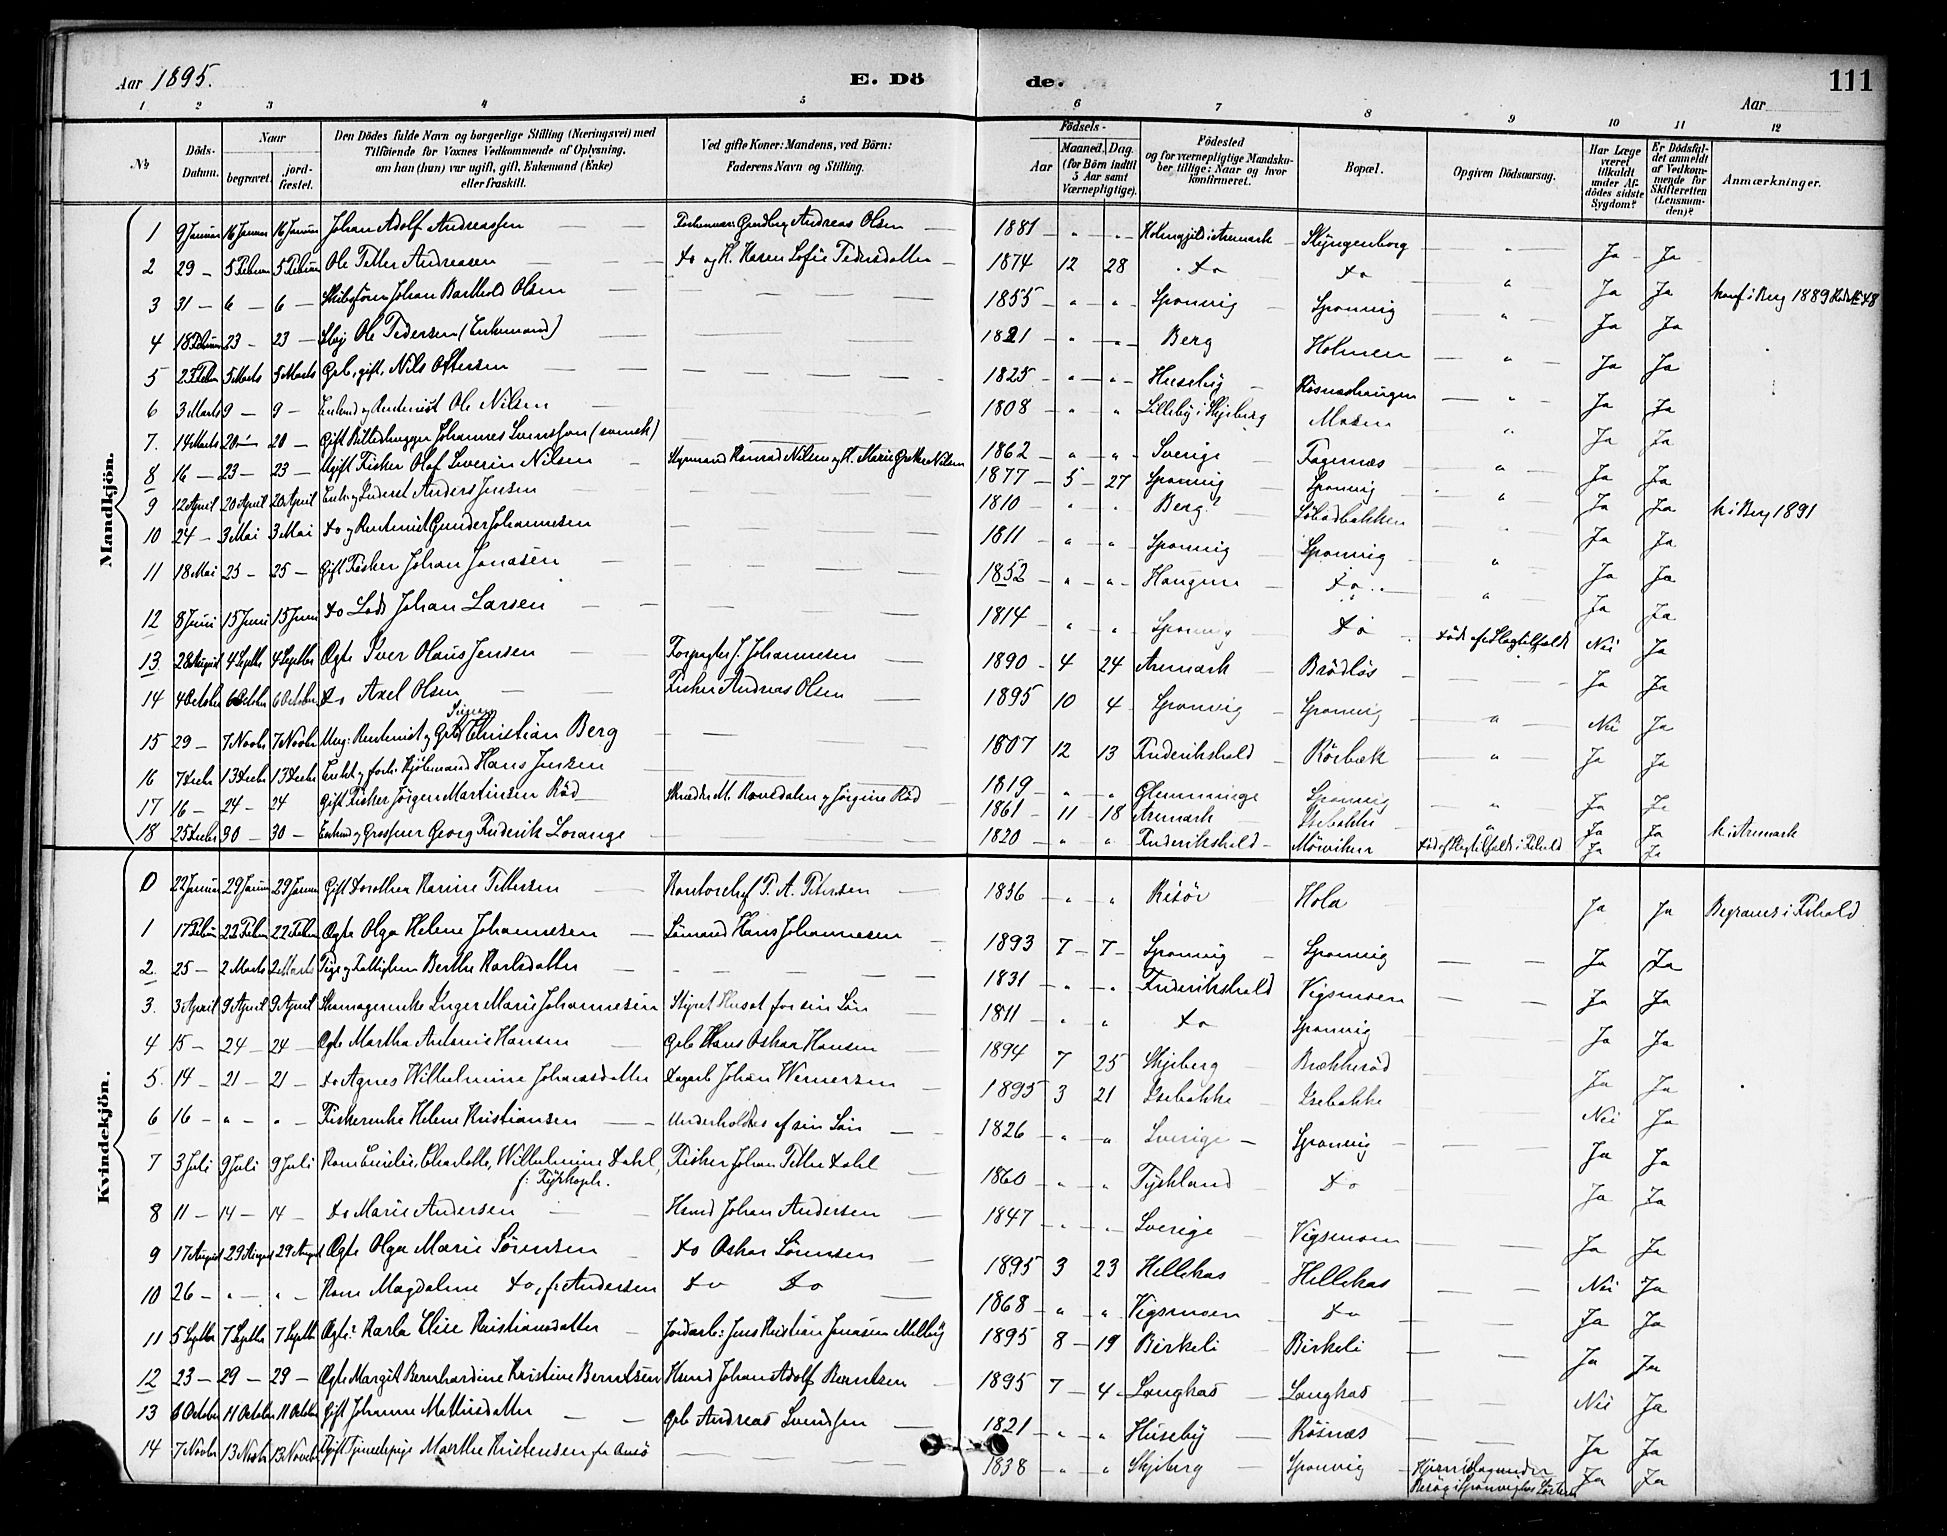 Aar 1895. E. Dö de. Aar 111
1 2 3 4 5 6 7 8 9 10 11 12
№ Döds-Datum. Naar begravet. jord-fæstet. Den Dödes fulde Navn og borgerlige Stilling (Næringsvei) med Tilföiende for Voxnes Vedkommende af Oplysning, om han (hun) var ugift, gift, Enkemand (Enke) eller fraskilt. Ved gifte Koner: Mandens, ved Börn: Faderens Navn og Stilling. Födsels- Aar Maaned. Dag. (for Börn indtil 5 Aar samt Værnepligtige). Födested og for værnepligtige Mandskaber tillige: Naar og hvor konfirmeret. Bopæl. Opgiven Dödsaarsag. Har Læge været tilkaldt under Afdödes sidste Sygdom? Er Dödsfaldet anmeldt af Vedkommende for Skifteretten (Lensmanden)? Anmærkninger.
Mandkjön.
1 9 Januar 16 Januar 16 Januar Johan Adolf Andreassen Andreas Olsen 1881 " " Aremark " Ja Ja
2 29 - 5 Februar 5 Februar Ole Petter Andreasen do og H. Karen Sofie Pedersdatter 1874 12 28 do do " Ja Ja Konf i Berg 1889
3 31 - 6 - 6 - Johan Barthold Olsen 1855 " " Sponvig Sponvig " Ja Ja
4 18 Februar 23 - 23 - Ole Pedersen (Enkemand) 1821 " " Berg Holmen " Ja Ja
5 5 Marts 5 Marts Grb, gift, Nils Ottersen 1825 " " Huseby " Ja Ja
6 3 Marts 9 - 9 - Ole Nilsen 1808 " " Lilleby i Skjeberg Mosen " Ja Ja
7. 14 Marts 20 - 20 - Gift Johannes Svensson (svensk) 1862 " " Sverige Fagernæs " Ja Ja
8 16 - 23 - 23 - Ugift Fisker Olaf Severin Nilsen Styrmand Konrad Nilsen og H. Marie Nilsen 1877 5 27 Sponvig Sponvig " Ja Ja K i Berg 1891
9 12 April 20 April 20 April Anders Jensen 1810 " " Berg? Ja Ja
10 24 - 3 Mai 3 Mai do og Rentenist Gunder Johannesen 1811 " " Sponvig Sponvig " Ja Ja
11 18 Mai 25 - 25 - Gift Fisker Johan Jonasen 1852 " " Haugene do " Ja Ja
12 8 Juni 15 Juni 15 Juni do Lods Johan Larsen 1814 " " Sponvig do död af Slagtilfælde Nei Ja
13 28 August 4 Septbr 4 Septbr Ægte Iver Olaus Jensen Forpagter J. Johannesen 1890 4 24 Aremark Brödlös Ja Ja
14 4 October 6 October 6 October do Axel Olsen Fisker Andreas Olsen 1895 10 4 Sponvig Sponvig " Nei Ja
15 29 - 7 Novbr 7 Novbr Christian Berg 1807 12 13 Frederikshald Rörbæk " Ja Ja
16 7 Decbr 13 Decbr 13 Decbr Hans Jensen 1819 " " Glemminge Sponvig " Ja Ja
17 16 - 24 - 24 Gift Fisker Jörgen Martinsen Röd og Jörgine Röd 1861 11 18 Aremark Isebakke " Ja Ja K i Aremark
18 25 Decbr 30 - 30 - Georg Frederik Lorange 1820 " " Frederikshald Ja Ja
Kvindekjön.
0 22 Januar 29 Januar 29 Januar Gift Dorothea Karine Pettersen Kontorchef P. A. Petersen 1836 " " Risör Hola Ja Ja Begraves i Fshald
1 17 Febr 22 Febr 22 Febr Ægte Olga Helene Johannesen Sömand Hans Johannesen 1893 7 7 Sponvig Sponvig Ja Ja
2. 25 - 2 Marts 2 Marts Berthe Karlsdatter 1831 " " Frederikshald Vigsmoen Ja Ja
3. 3 April 9 April 9 April Inger Marie Johannesen Styret Huset for sin Sön 1811 " " do Sponvig Ja Ja
4 15 - 24 - 24 - Ægte Martha Antonie Hansen Grb Hans Oskar Hansen 1894 7 25 Skjeberg Brækkeröd Ja Ja
5. 14 - 21 - 21 - do Agnes Wilhelmine Johansdatter Dagarb Johan Wernersen 1895 3 21 Isebakke Isebakke Nei Ja
6 16 - " - " - Fiskerenke Helene Kristiansen Underholdtes af sin Sön 1826 " " Sverige Sponvig Ja Ja
7 3 Juli 9 Juli 9 Juli Kone Emilie, Charlotte, Wilhelmine Dahl, Fisker Johan Petter Dahl 1860 " " Tyskland do Ja Ja
8 11 - 14 - 14 - do Marie Andersen Hsmd Johan Andersen 1847 " " Sverige Vigsmoen Ja Ja
9 17 August 29 August 29 August Ægte Olga Marie Sörensen do Oskar Sörensen 1895 3 23 Hellekas Hellekas Nei Ja
10 26 - " - " - Kone Magdalene do, f. Andersen do do 1868 " " Vigsmoen do Ja Ja
11 5 Septbr 7 Septbr 7 Septbr Ægte: Karla Elise Kristiansdatter Jordarb: Jens Kristian Jonasen Melby 1895 8 19 Birkeli Birkeli Ja Ja
12 23 - 29 - 29 - Ægte Margit Bernhardine Kristine Berntsen Hsmd Johan Adolf Berntsen 1895 7 4 Langkas Langkas Nei Ja
13 6 October 11 October 11 October Gift Johanne Mathisdatter Grb Andreas Svendsen 1821 " " Huseby Rösnæs Ja Ja
14 7 Novbr 13 Novbr 13 Novbr Ugift Tjenestepige Marthe Kristensen 1838 " " Skjeberg Sponvig Ja Ja